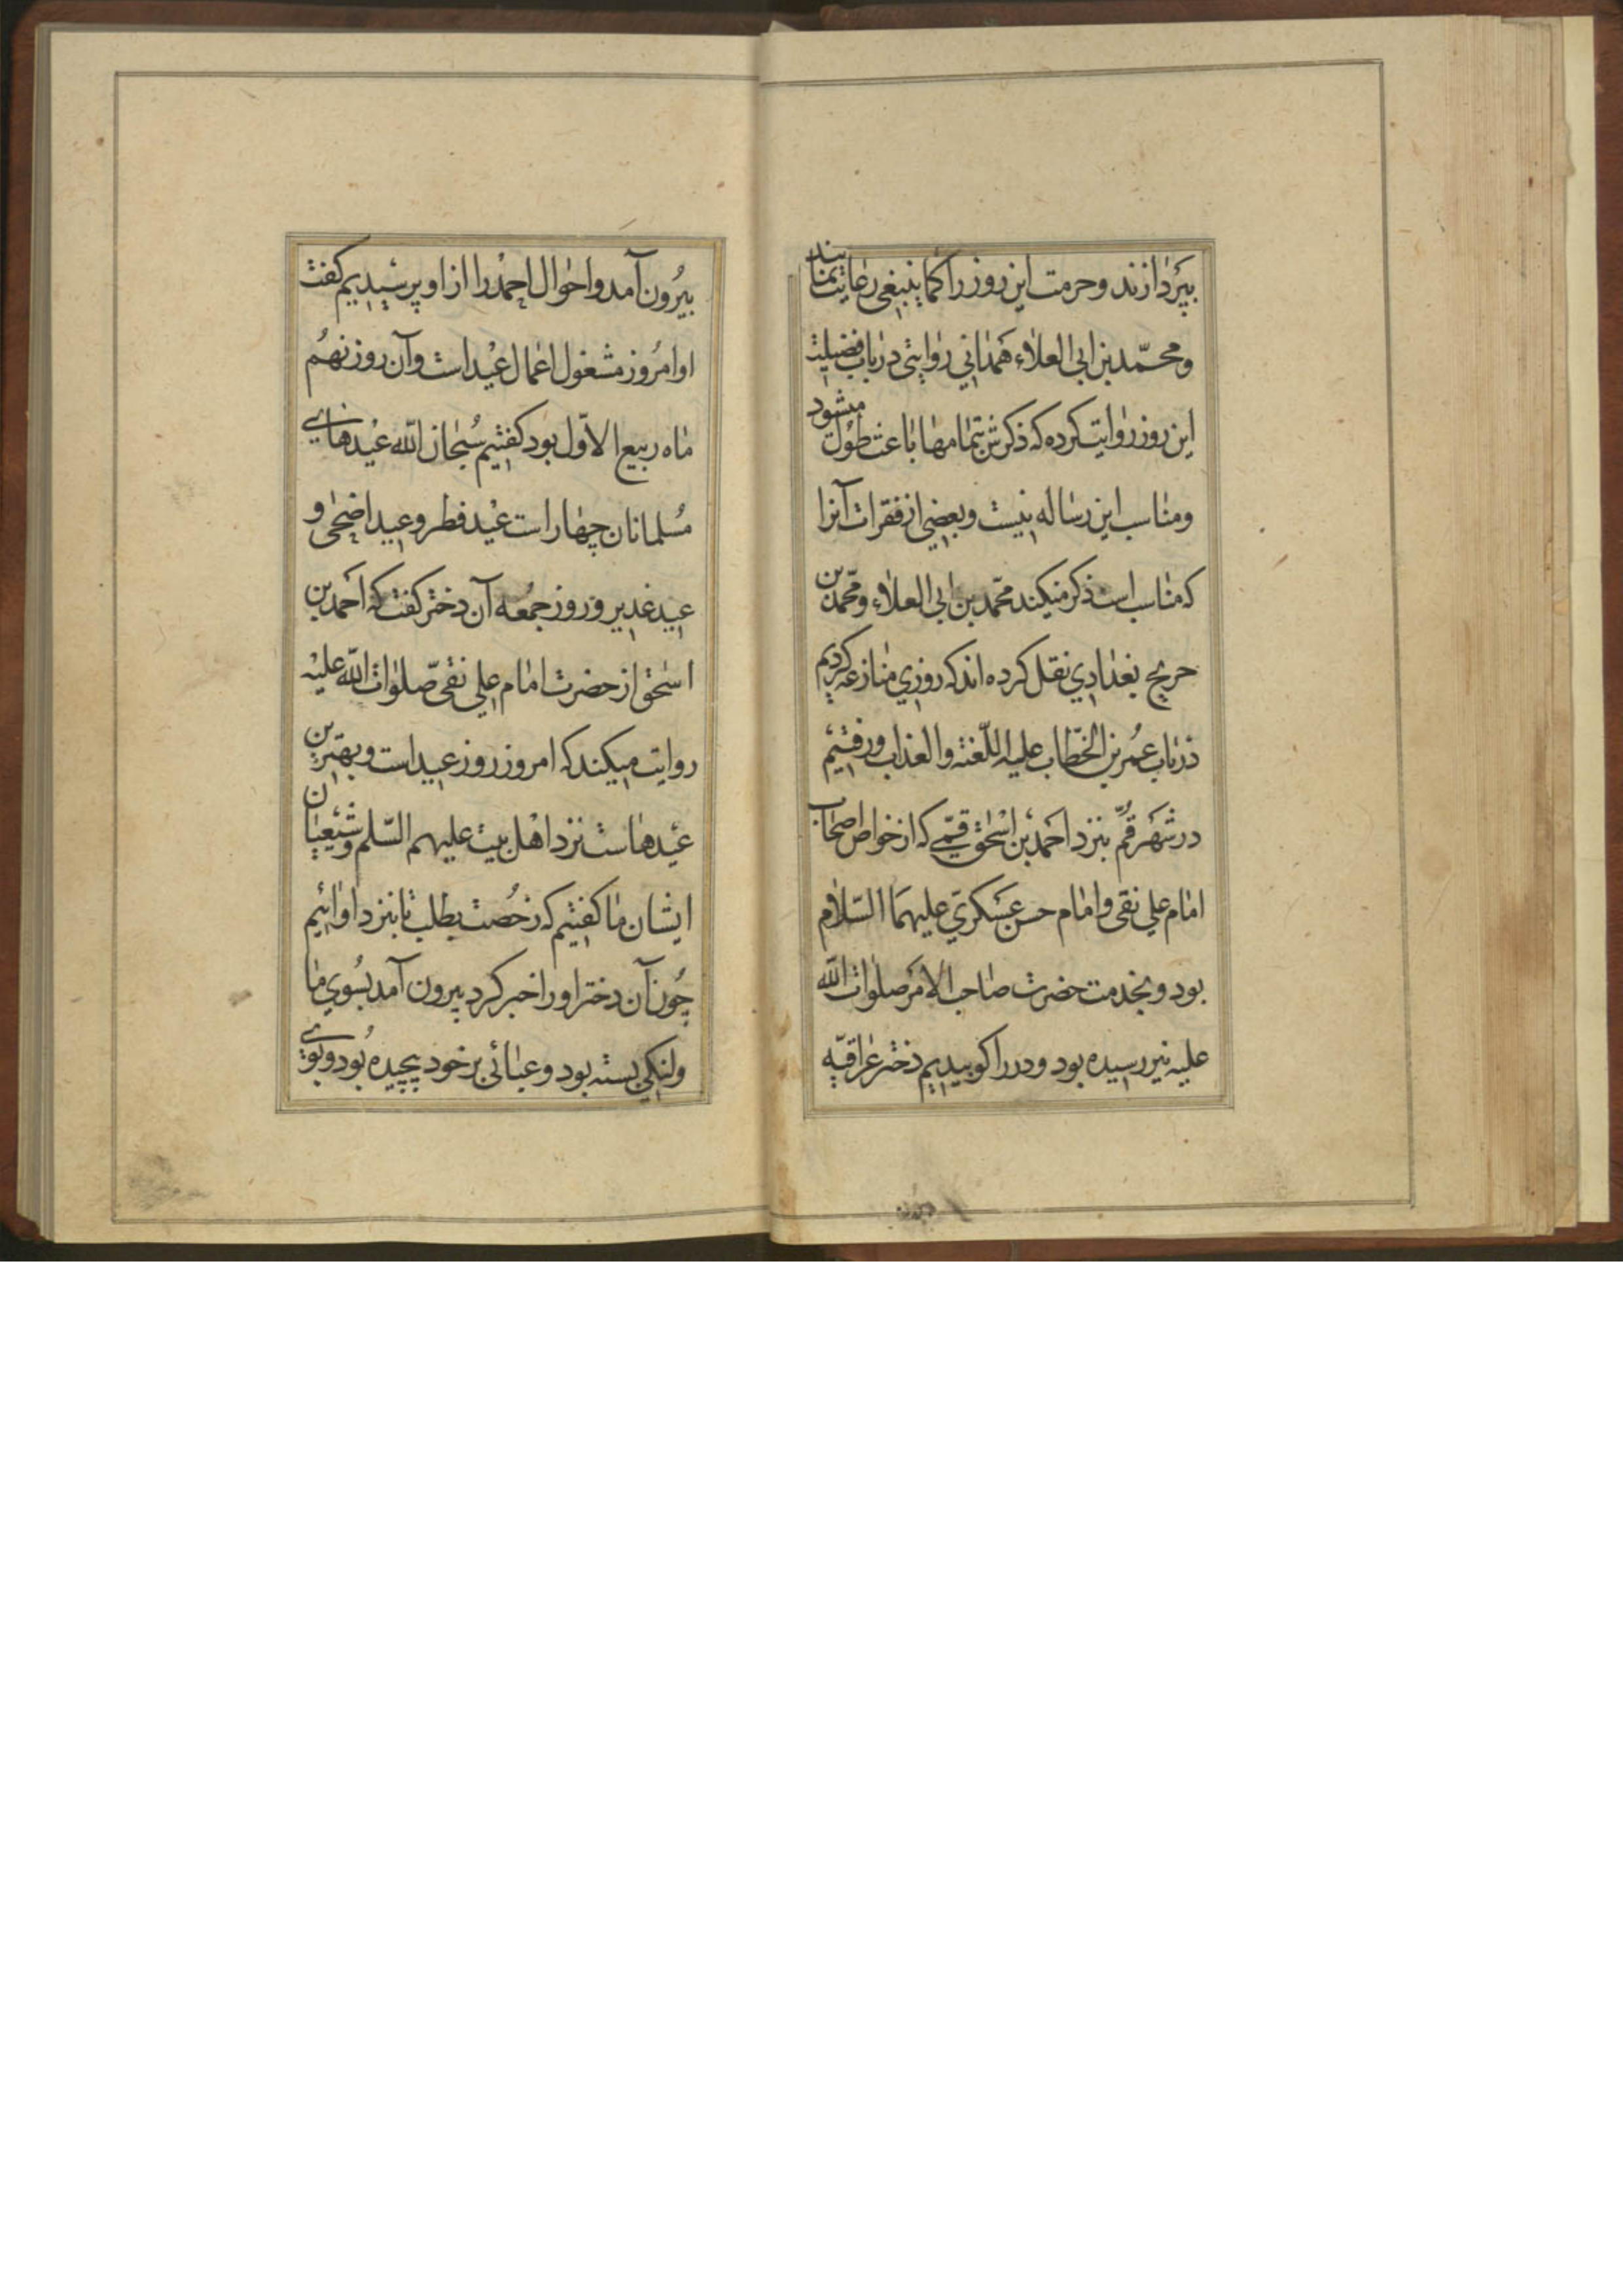 بپردازند و حرمت این روز را کما ینبغی رعایت نمایند
و محمّد بن ابی العلاء همدانی روایتی در باب فضیلت
این روز روایت کرده که ذکرش بتمامها باعث طول میشود
و مناسب این رساله نیست و بعضی از فقرات آنرا
که مناسب است ذکر میکند محمّد بن ابی العلاء و محمّد بن
جریح بغدادی نقل کرده اند که روزی منازعه کردیم
در باب عمر بن الخطّاب علیه اللّعنه و العذاب و رفتیم
در شهر قم بنزد احمد بن اسحٰق قمّی که از خواص اصحاب
امام علی نقی و امام حسن عسکری علیهما السّلام
بود و بخدمت حضرت صاحب الامر صلوات اللّه
علیه نیز رسیده بود و در را کوبیدیم دختر عراقیّه
بیرون آمد و احوال احمد را از او پرسیدیم کفت
او امروز مشغول اعمال عید است و آن روز نهم
ماه ربیع الاوّل بود کفتیم سبحان اللّه عیدهای
مسلمانان چهار است عید فطر و عید اضحی و
عید غدیر و روز جمعه آن دختر کفت که احمد بن
اسحٰق از حضرت امام علی نقی صلوات اللّه علیه
روایت میکند که امروز روز عید است و بهترین
عیدهاست نزد اهل بیت علیهم السّلم و شیعیان
ایشان ما کفتیم که رخصت بطلب تا بنزد او ائیم
چون آن دختر او را خبر کرد بیرون آمد بسوی ما
ولنکی بسته بود و عبائی بر خود پیچیده بود و بوی